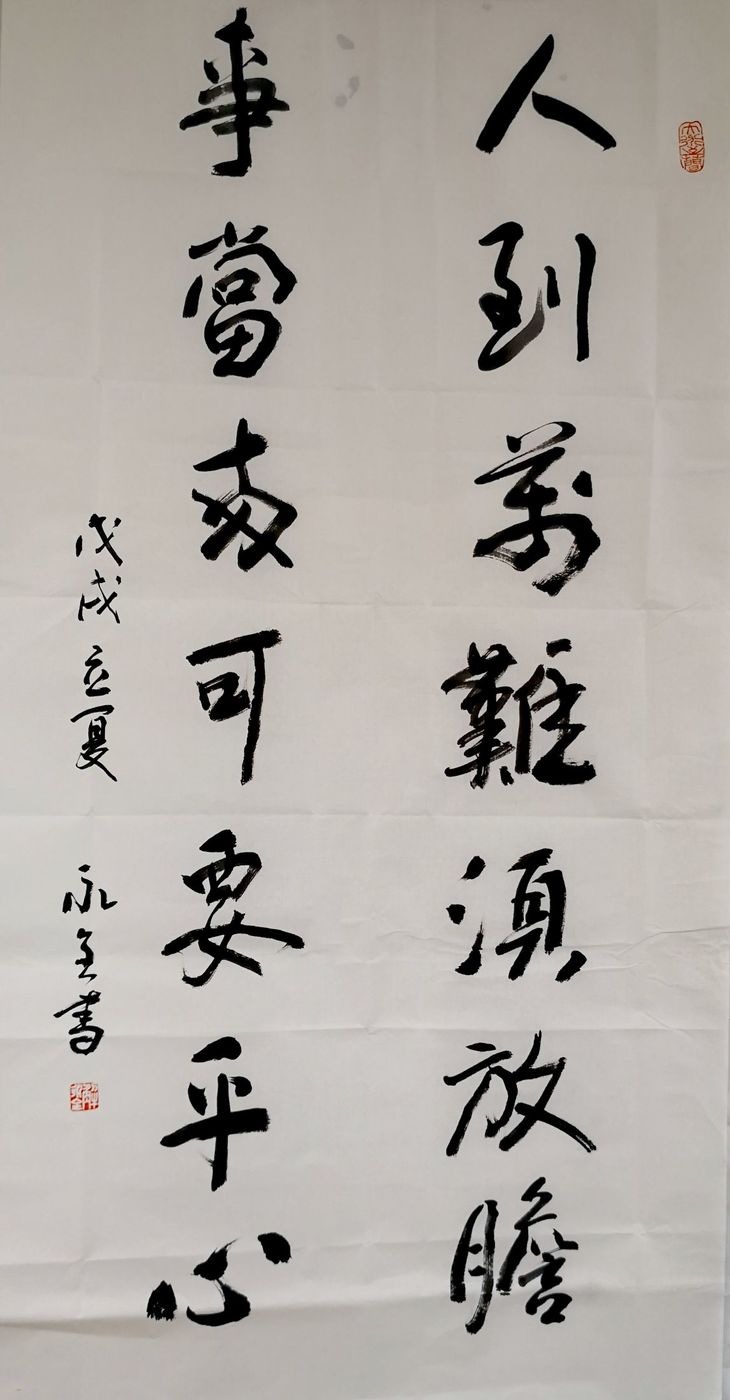 人到萬難須放膽
事當兩可要平心
戊戌立夏 永全書